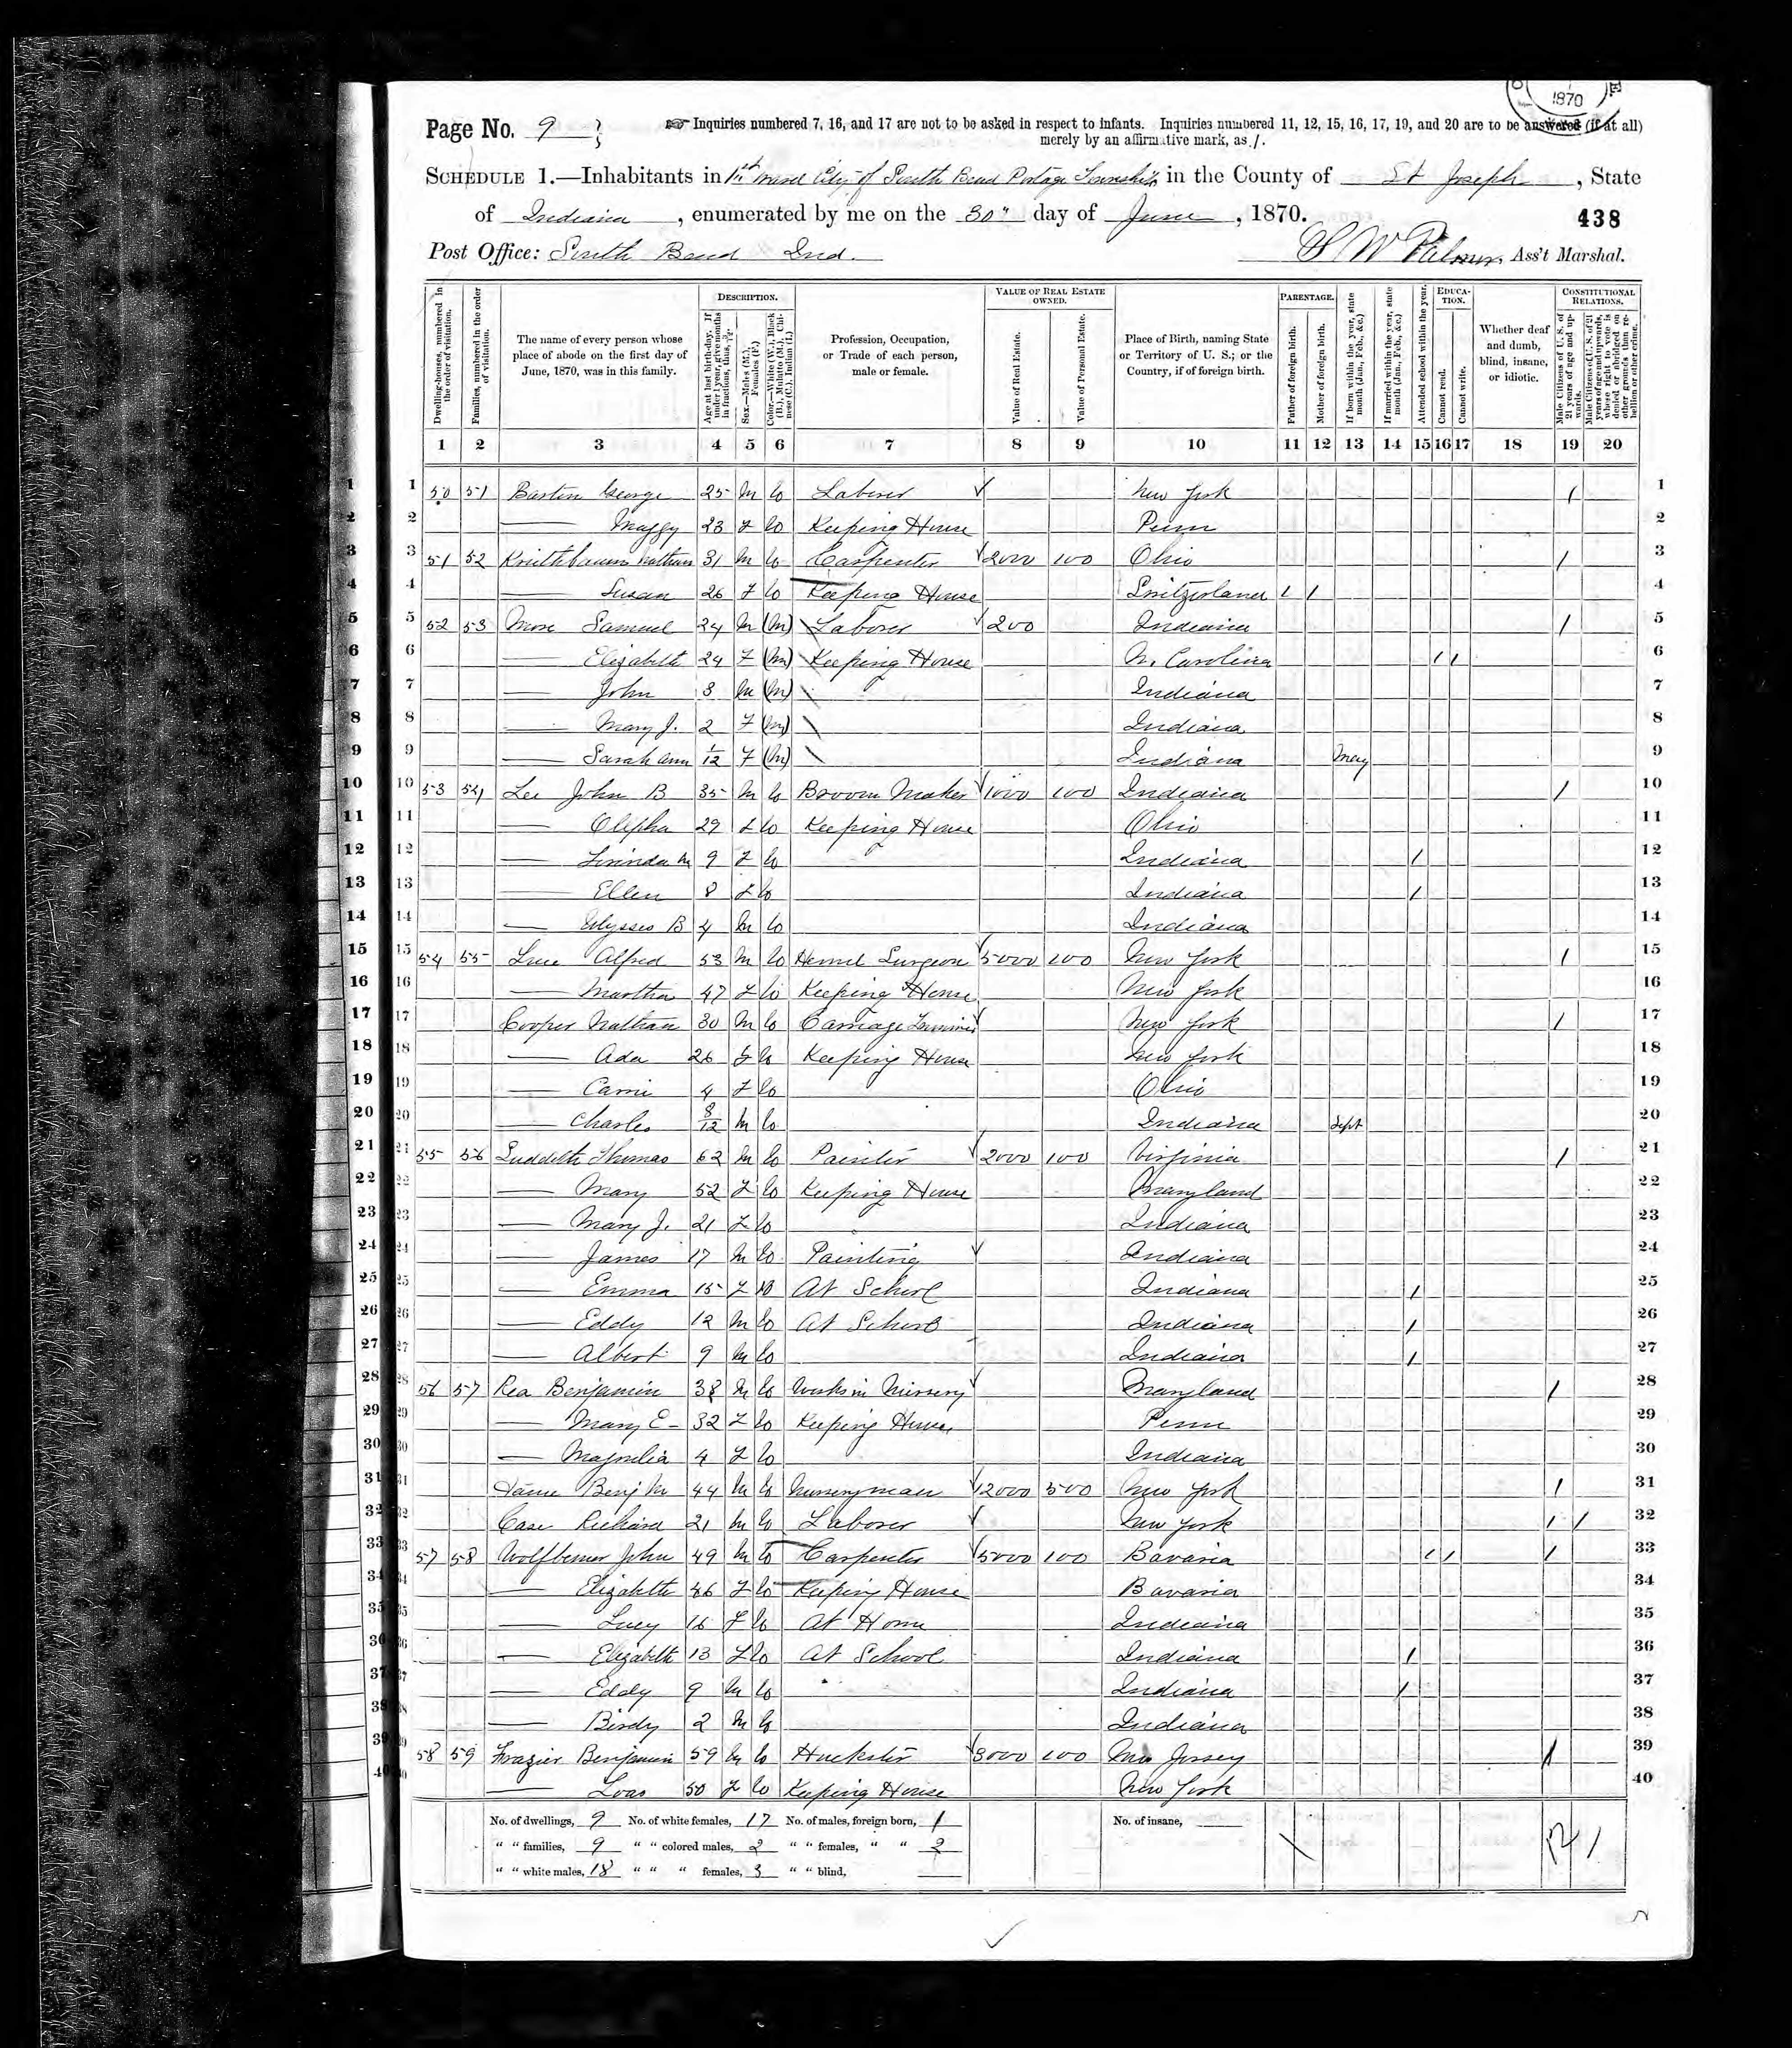 1870
Page No. 9
☞ Inquiries numbered 7, 16, and 17 are not to be asked in respect to infants. Inquiries numbered 11, 12, 15, 16, 17, 19, and 20 are to be answered (if at all)
merely by an affirmative mark, as /.
SCHEDULE 1.—Inhabitants in 1st Ward City of South Bend Portage Township, in the County of St Joseph, State
of Indiana, enumerated by me on the 30" day of June, 1870. 438
Post Office: South Bend Ind. S W Ass't Marshal.
Dwelling-houses, numbered in the order of visitation.
Families, numbered in the order of visitation.
The name of every person whose place of abode on the first day of June, 1870, was in this family.
DESCRIPTION.
Age at last birth-day. If under 1 year, give months in fractions, thus, 3/12.
Sex.—Males (M.), Females (F.)
Color.—White (W.), Black (B.), Mulatto (M.), Chinese (C.), Indian (I.)
Profession, Occupation, or Trade of each person, male or female.
VALUE OF REAL ESTATE OWNED.
Value of Real Estate.
Value of Personal Estate.
Place of Birth, naming State or Territory of U. S.; or the Country, if of foreign birth.
PARENTAGE.
Father of foreign birth.
Mother of foreign birth.
If born within the year, state month (Jan., Feb., &c.)
If married within the year, state month (Jan., Feb., &c.)
Attended school within the year.
EDUCATION.
Cannot read.
Cannot write.
Whether deaf and dumb, blind, insane, or idiotic.
CONSTITUTIONAL RELATIONS.
Male Citizens of U. S. of 21 years of age and upwards.
Male Citizens of U. S. of 21 years of age and upwards, whose right to vote is denied or abridged on other grounds than rebellion or other crime.
1 2 3 4 5 6 7 8 9 10 11 12 13 14 15 16 17 18 19 20
1 50 51 George 25 M W Laborer New York / 1
2 — Maggy 23 F W Keeping House Penn 2
3 51 52 31 M W Carpenter 2000 100 Ohio / 3
4 — Susan 26 F W Keeping House Switzerland / / 4
5 52 53 Samuel 24 M (M) Laborer 200 Indiana / 5
6 — Elizabeth 24 F (M) Keeping House N. Carolina / / 6
7 — John 3 M (M) Indiana 7
8 — Mary J. 2 F (M) Indiana 8
9 — Sarah Ann 1/12 F (M) Indiana May 9
10 53 54 Lee John B 35 M W Broom Maker 1000 100 Indiana / 10
11 — Olipha 29 F W Keeping House Ohio 11
12 — M 9 F W Indiana / 12
13 — Ellen 8 F W Indiana / 13
14 — Ulysses B 4 M W Indiana 14
15 54 55 Alfred 53 M W Surgeon 5000 100 New York / 15
16 — Martha 47 F W Keeping House New York 16
17 Cooper Nathan 30 M W Carriage New York / 17
18 — Ada 26 F W Keeping House New York 18
19 — Carrie 4 F W Ohio 19
20 — Charles 8/12 M W Indiana Sept 20
21 55 56 Suddith Thomas 62 M W Painter 2000 100 Virginia / 21
22 — Mary 52 F W Keeping House Maryland 22
23 — Mary J. 21 F W Indiana 23
24 — James 17 M W Painting Indiana 24
25 — Emma 15 F W At School Indiana / 25
26 — Eddy 12 M W At School Indiana / 26
27 — Albert 9 M W Indiana / 27
28 56 57 Rea Benjamin 38 M W Works in Nursery Maryland / 28
29 — Mary E 32 F W Keeping House Penn 29
30 — Magnolia 4 F W Indiana 30
31 Benj M 44 M W Nurseryman 12000 500 New York / 31
32 Case Richard 21 M W Laborer New York / / 32
33 57 58 John 49 M W Carpenter 5000 100 Bavaria / / / 33
34 — Elizabeth 46 F W Keeping House Bavaria 34
35 — Lucy 16 F W At Home Indiana 35
36 — Elizabeth 13 F W At School Indiana / 36
37 — Eddy 9 M W Indiana / 37
38 — Birdy 2 M W Indiana 38
39 58 59 Frazier Benjamin 59 M W Huckster 3000 100 New Jersey / 39
40 — 50 F W Keeping House New York 40
No. of dwellings, 9 No. of white females, 17 No. of males, foreign born, 1 No. of insane,
" " families, 9 " " colored males, 2 " " females, " " 2 12 1
" " white males, 18 " " " females, 3 " " blind,